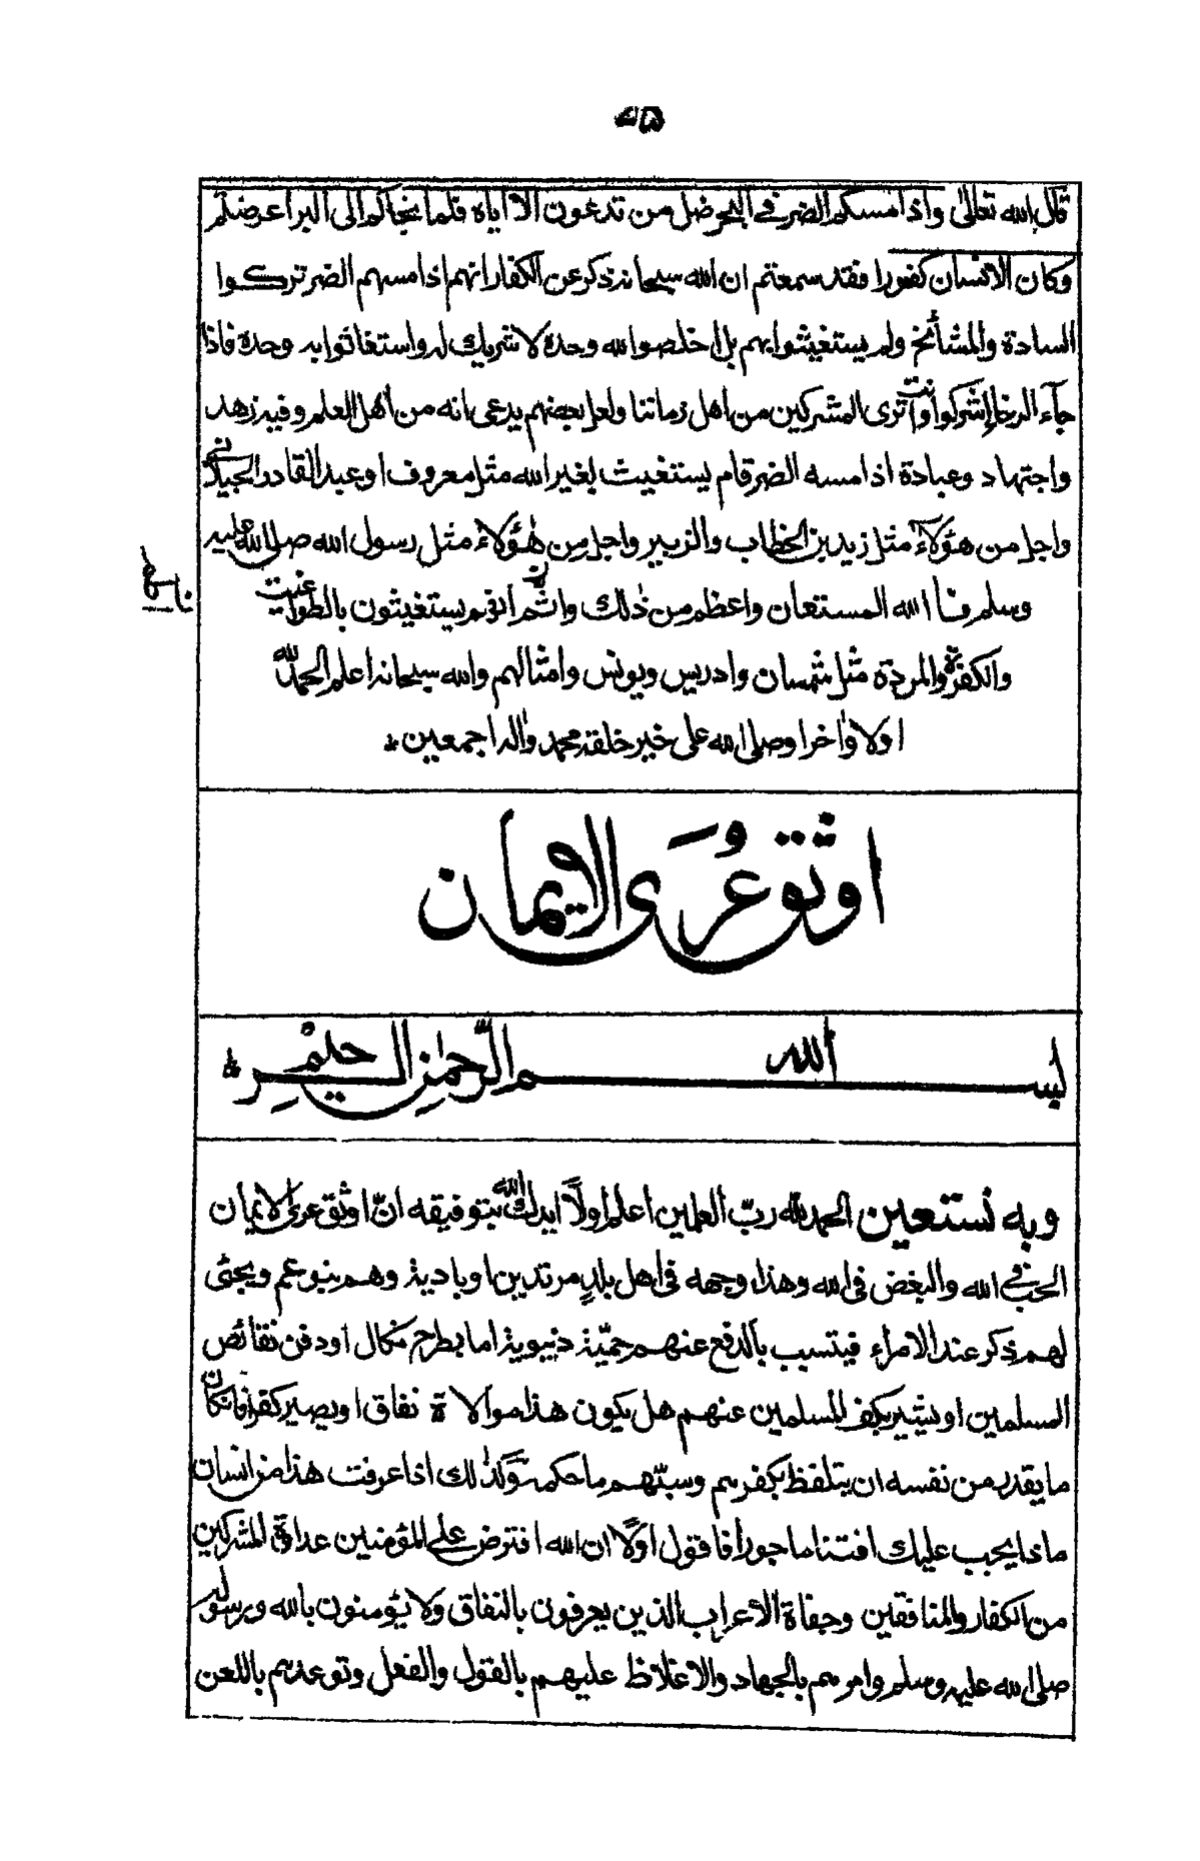 قال الله تعالى واذا مسكم الضر في البحر ضل من تدعون الا اياه فلما نجاكم الى البر اعرضتم
وكان الانسان كفورا فقد سمعتم ان الله سبحانه ذكر عن الكفار انهم اذا مسهم الضر تركوا
السادة والمشائخ ولم يستغيثوا بهم بل اخلصوا لله وحده لا شريك له واستغاثوا به وحده فاذا
جآء الرخا اشركوا وانت ترى المشركين من اهل زماننا ولعل بعضهم يدعى انه من اهل العلم وفيه زهد
واجتهاد وعبادة اذا مسه الضر قام يستغيث بغير الله مثل معروف او عبد القادر الجيلانى
واجل من هؤلآء مثل زيد بن الخطاب والزبير واجل من هٰؤلاء مثل رسول الله صلى الله عليه
وسلم فا الله المستعان واعظم من ذٰلك واثم انهم يستغيثون بالطواغيت
والكفرة والمردة مثل شمسان وادريس ويونس وامثالهم والله سبحانه اعلم الحمد لله
اولا واٰخرا وصلى الله على خير خلقه محمد واٰله اجمعين
اوثق عُرَى الايمان
بسم الله الرّحمٰن الرحيم
وبه نستعين الحمد لله ربّ العلمين اعلم اولاً ايدك الله بتوفيقه انّ اوثق عرى الايمان
الحب في الله والبغض فى الله وهذا وجهه فى اهل بلدٍ مرتدين او بادية وهم بنو عم ويجئى
لهم ذكر عند الامراء فيتسبب بالدفع عنهم حميّة دنيوية اما بطرح نكال او دفن نقائص
المسلمين او يشير بكف المسلمين عنهم هل يكون هذا موالاة نفاق او يصير كفرا فان كان
ما يقدر من نفسه ان يتلفظ بكفرهم وسبّهم ما حكمه وكذٰلك اذا عرفت هذا من انسان
ماذا يجب عليك افتنا ماجورا فاقول اولًا ان الله افترض على المؤمنين عداوة المشركين
من الكفار والمنافقين وجفاة الأعراب الذين يعرفون بالنفاق ولا يؤمنون بالله وبرسوله
صلى الله عليه وسلم وامرهم بالجهاد والاغلاظ عليهم بالقول والفعل وتوعدهم باللعن